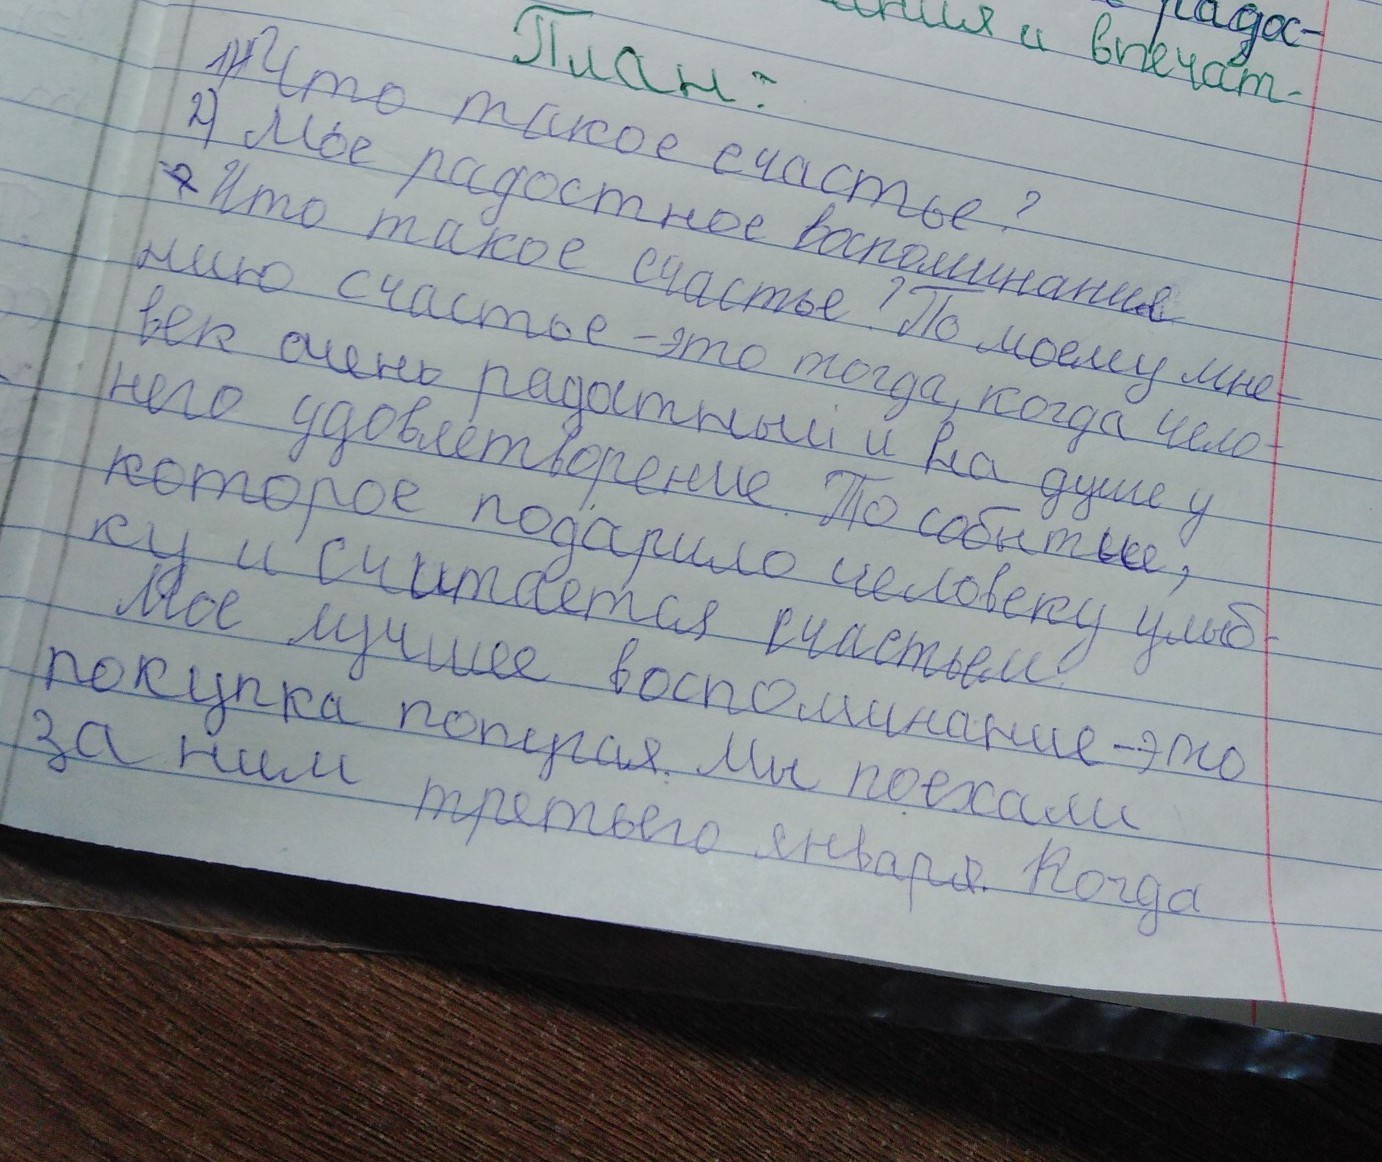 радос-
и впечат-
План:
1) Что такое счастье?
2) Мое радостное воспоминание
Что такое счастье? По моему мне-
нию счастье - это тогда, когда чело-
век очень радостный и на душе у
него удовлетворение. То событие,
которое подарило человеку улыб-
ку и считается счастьем.
Мое лучшее воспоминание - это
покупка попугая. Мы поехали
за ним третьего января. Когда